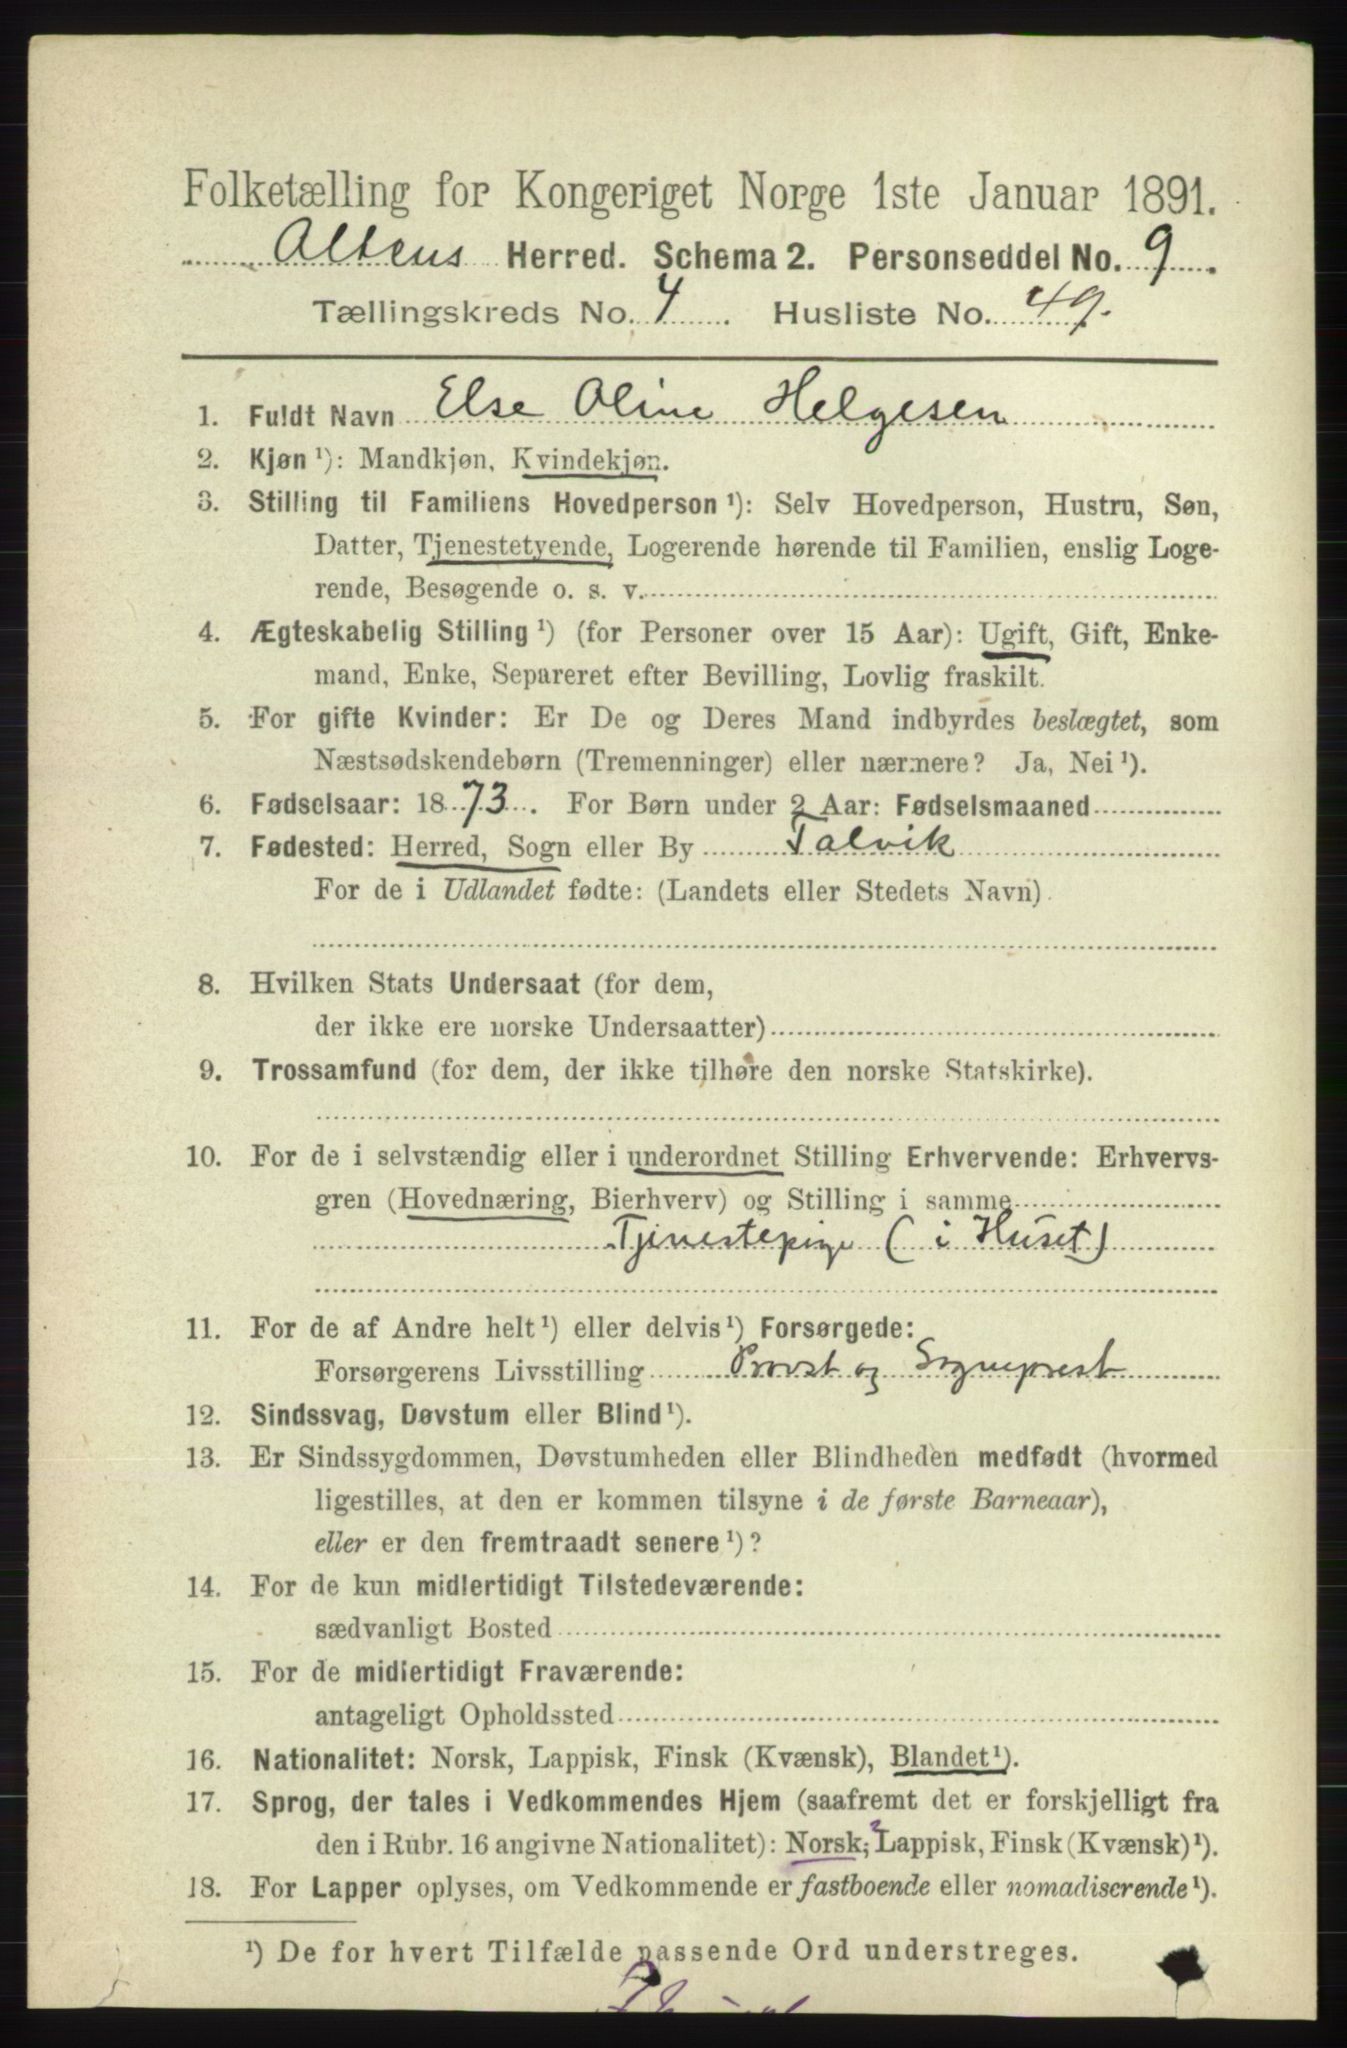 Folketælling for Kongeriget Norge 1ste Januar 1891.
Altens Herred. Schema 2. Personseddel No. 9.
Tællingskreds No. 4. Husliste No. 49.
1. Fuldt Navn Else Oline Helgesen
2. Kjøn ¹): Mandkjøn, Kvindekjøn.
3. Stilling til Familiens Hovedperson ¹): Selv Hovedperson, Hustru, Søn,
Datter, Tjenestetyende, Logerende hørende til Familien, enslig Loge-
rende, Besøgende o. s. v.
4. Ægteskabelig Stilling ¹) (for Personer over 15 Aar): Ugift, Gift, Enke-
mand, Enke, Separeret efter Bevilling, Lovlig fraskilt.
5. For gifte Kvinder: Er De og Deres Mand indbyrdes beslægtet, som
Næstsødskendebørn (Tremenninger) eller nærmere? Ja, Nei ¹).
6. Fødselsaar: 1873. For Børn under 2 Aar: Fødselsmaaned
7. Fødested: Herred, Sogn eller By Talvik
For de i Udlandet fødte: (Landets eller Stedets Navn).
8. Hvilken Stats Undersaat (for dem,
der ikke ere norske Undersaatter)
9. Trossamfund (for dem, der ikke tilhøre den norske Statskirke).
10. For de i selvstændig eller i underordnet Stilling Erhvervende: Erhvervs-
gren (Hovednæring, Bierhverv) og Stilling i samme
Tjenestepige (i Huset)
11. For de af Andre helt ¹) eller delvis ¹) Forsørgede:
Forsørgerens Livsstilling Provst og Sogneprest
12. Sindssvag, Døvstum eller Blind ¹).
13. Er Sindssygdommen, Døvstumheden eller Blindheden medfødt (hvormed
ligestilles, at den er kommen tilsyne i de første Barneaar),
eller er den fremtraadt senere ¹)?
14. For de kun midlertidigt Tilstedeværende:
sædvanligt Bosted
15. For de midlertidigt Fraværende:
antageligt Opholdssted
16. Nationalitet: Norsk, Lappisk, Finsk (Kvænsk), Blandet ¹).
17. Sprog, der tales i Vedkommendes Hjem (saafremt det er forskjelligt fra
den i Rubr. 16 angivne Nationalitet): Norsk, Lappisk, Finsk (Kvænsk) ¹).
18. For Lapper oplyses, om Vedkommende er fastboende eller nomadiserende ¹).
¹) De for hvert Tilfælde passende Ord understreges.